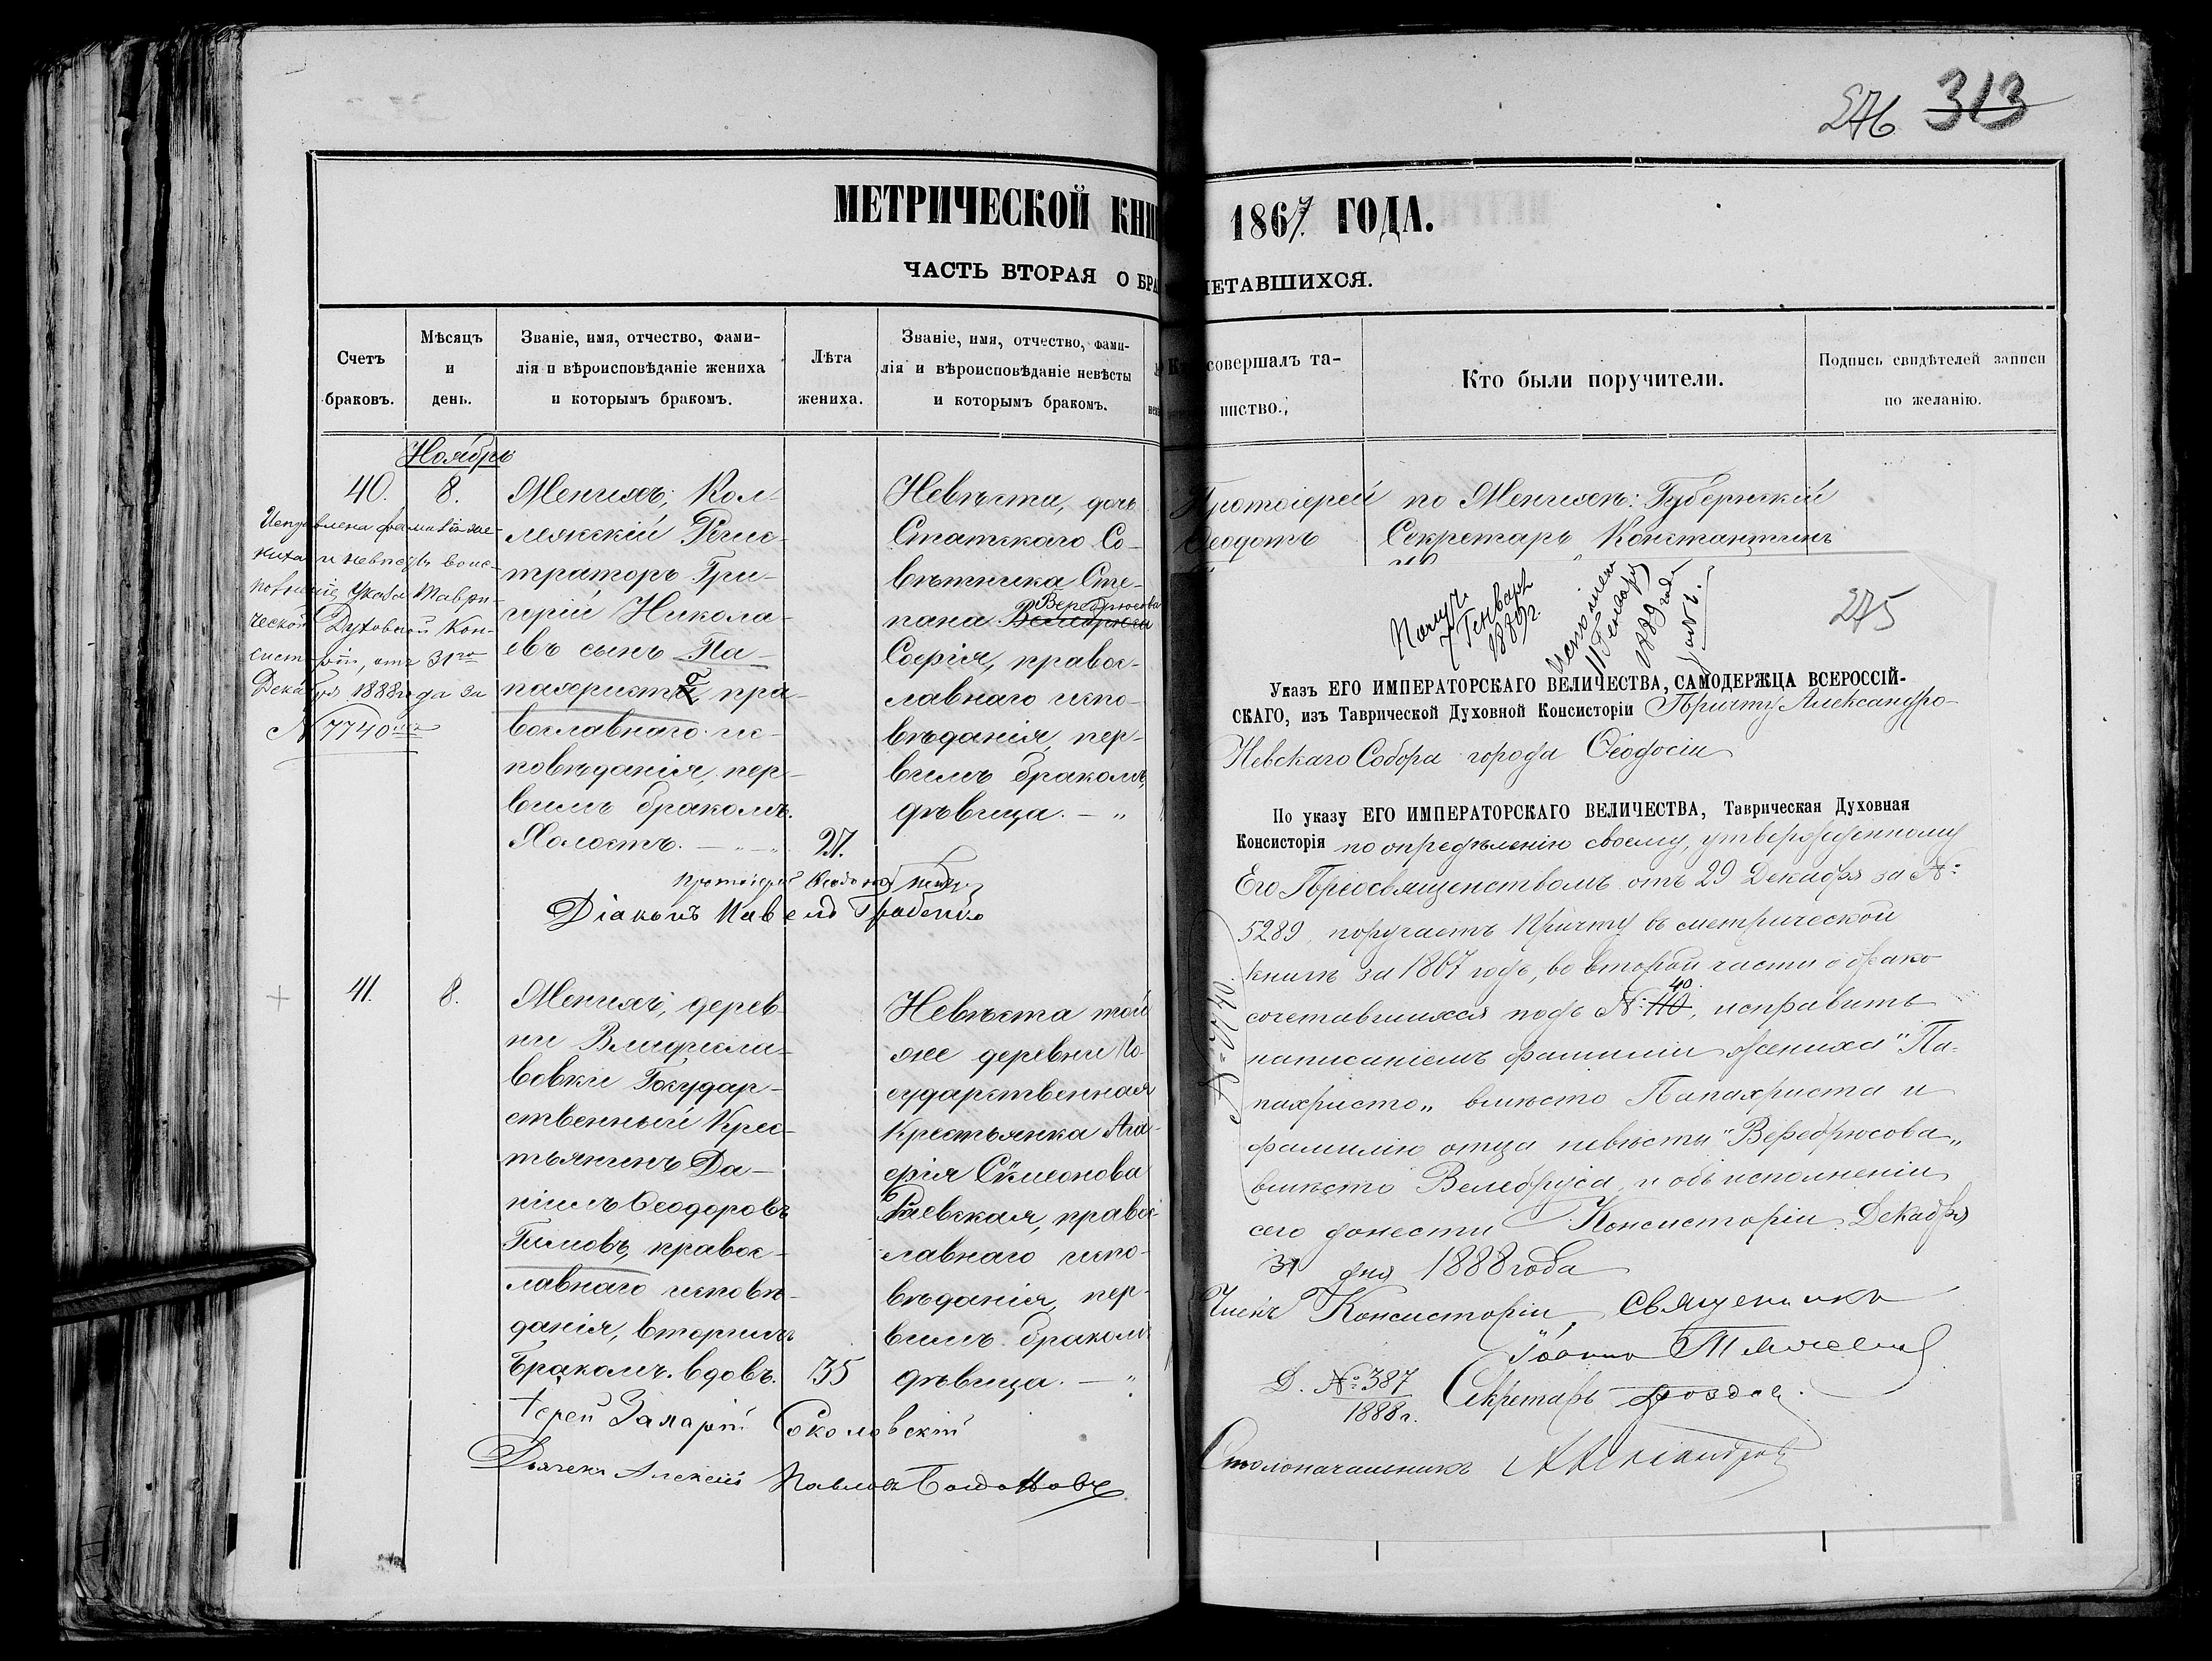 276 313
МЕТРИЧЕСКОЙ КНИ
1867 ГОДА.
ЧАСТЬ ВТОРАЯ О БРА
ЧЕТАВШИХСЯ.
Счетъ
браковъ.
Мѣсяцъ
и
день.
Званіе, имя, отчество, фами-
лія и вѣроисповѣданіе жениха
и которымъ бракомъ.
Лѣта
жениха.
Званіе, имя, отчество, фами-
лія и вѣроисповѣданіе невѣсты
и которымъ бракомъ.
совершалъ та-
инство.
Кто были поручители.
Подпись свидѣтелей записи
по желанію.
Ноябрь
40.
8.
Исправлена фамилія же-
ниха и невѣсты во ис-
полненіе Указа Таври-
ческой Духовной Кон-
систоріи, отъ 31го
Декабря 1888 года за
№ 7740
Женихъ; Кол-
лежскій Регис-
траторъ Гри-
горій Никола-
евъ сынъ Па-
пахристо пра-
вославнаго ис-
повѣданія, пер-
вымъ бракомъ.
Холостъ.
27.
Невѣста, дочь
Статскаго Со-
вѣтника Сте-
Вередрюсова
пана
Софія, правос-
лавнаго испо-
вѣданія, пер-
вымъ бракомъ,
дѣвица.
Протоіерей
Діаконъ Павелъ
Протоіерей
Ѳеодотъ
по Женихѣ: Губернскій
Секретарь Константинъ
41.
8.
Женихъ, дерев-
ни Владисла-
вовки Государ-
ственный Крес-
тьянинъ Да-
ніилъ Ѳеодоровъ
правос-
лавнаго исповѣ-
данія, вторымъ
бракомъ. вдовъ.
35
Невѣста той
же деревни Го-
сударственная
Крестьянка Ага-
фія Сѵмеонова
Раевская, правос-
лавнаго испо-
вѣданія, пер-
вымъ бракомъ
дѣвица.
Іерей Захарій Соколовскій
Дьячекъ Алексій Павловъ
Получ.
7 Генваря
1889 г.
Исполнен
11 Генваря
1889 года
275
Указъ ЕГО ИМПЕРАТОРСКАГО ВЕЛИЧЕСТВА, САМОДЕРЖЦА ВСЕРОССІЙ-
СКАГО, изъ Таврической Духовной Консисторіи Причту Александро-
Невскаго Собора города Ѳеодосіи
По указу ЕГО ИМПЕРАТОРСКАГО ВЕЛИЧЕСТВА, Таврическая Духовная
Консисторія по опредѣленію своему, утвержденному
Его Преосвященствомъ отъ 29 Декабря за №
5289, поручаетъ Причту въ метрической
книгѣ за 1867 годъ, во второй части о брако
40.
сочетавшихся подъ №: 40, исправить
написаніемъ фамиліи жениха "Па-
пахристо" вмѣсто Папахриста и
фамилію отца невѣсты "Вередрюсова"
вмѣсто Веледруса, и объ исполненіи
сего донести Консисторіи. Декабря
31 дня 1888 года
№ 7740
Членъ Консисторіи, Священникъ
Іоаннъ
Д. № 387
1888 г.
Секретарь
Столоначальникъ